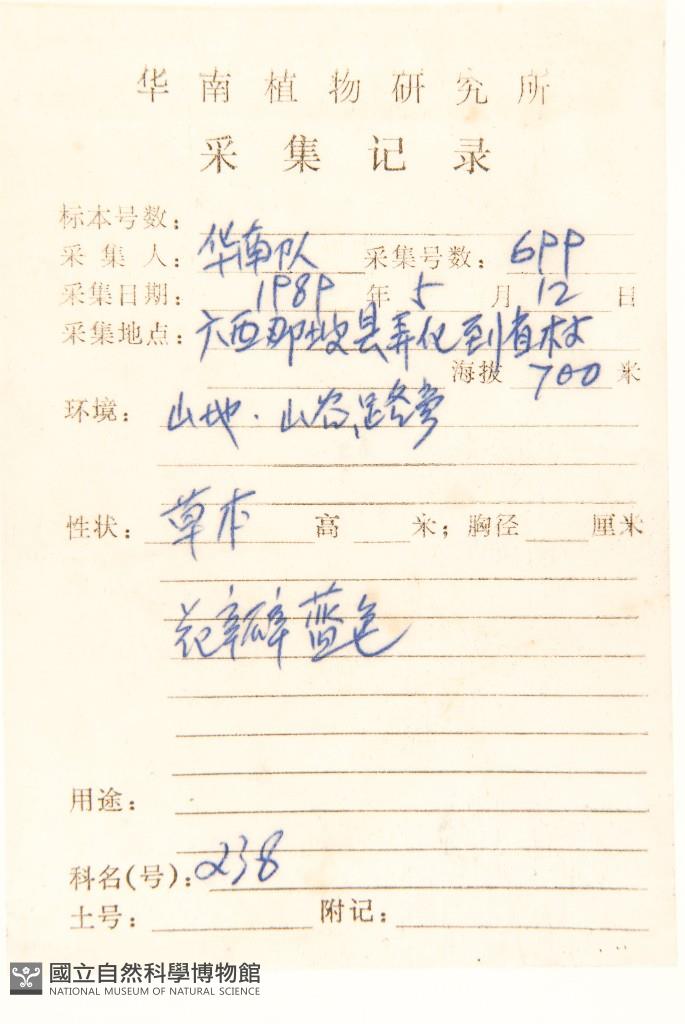 华南植物研究所
采集记录
标本号数：
采集人：华南队 采集号数：699
采集日期：1989年5月12日
采集地点：广西那坡县弄化到省村
海拔 700 米
环境：山地．山谷,路旁
性状：草本 高 米；胸径 厘米
花瓣蓝色
用途：
科名(号)：238
土号： 附记：
國立自然科學博物館
NATIONAL MUSEUM OF NATURAL SCIENCE